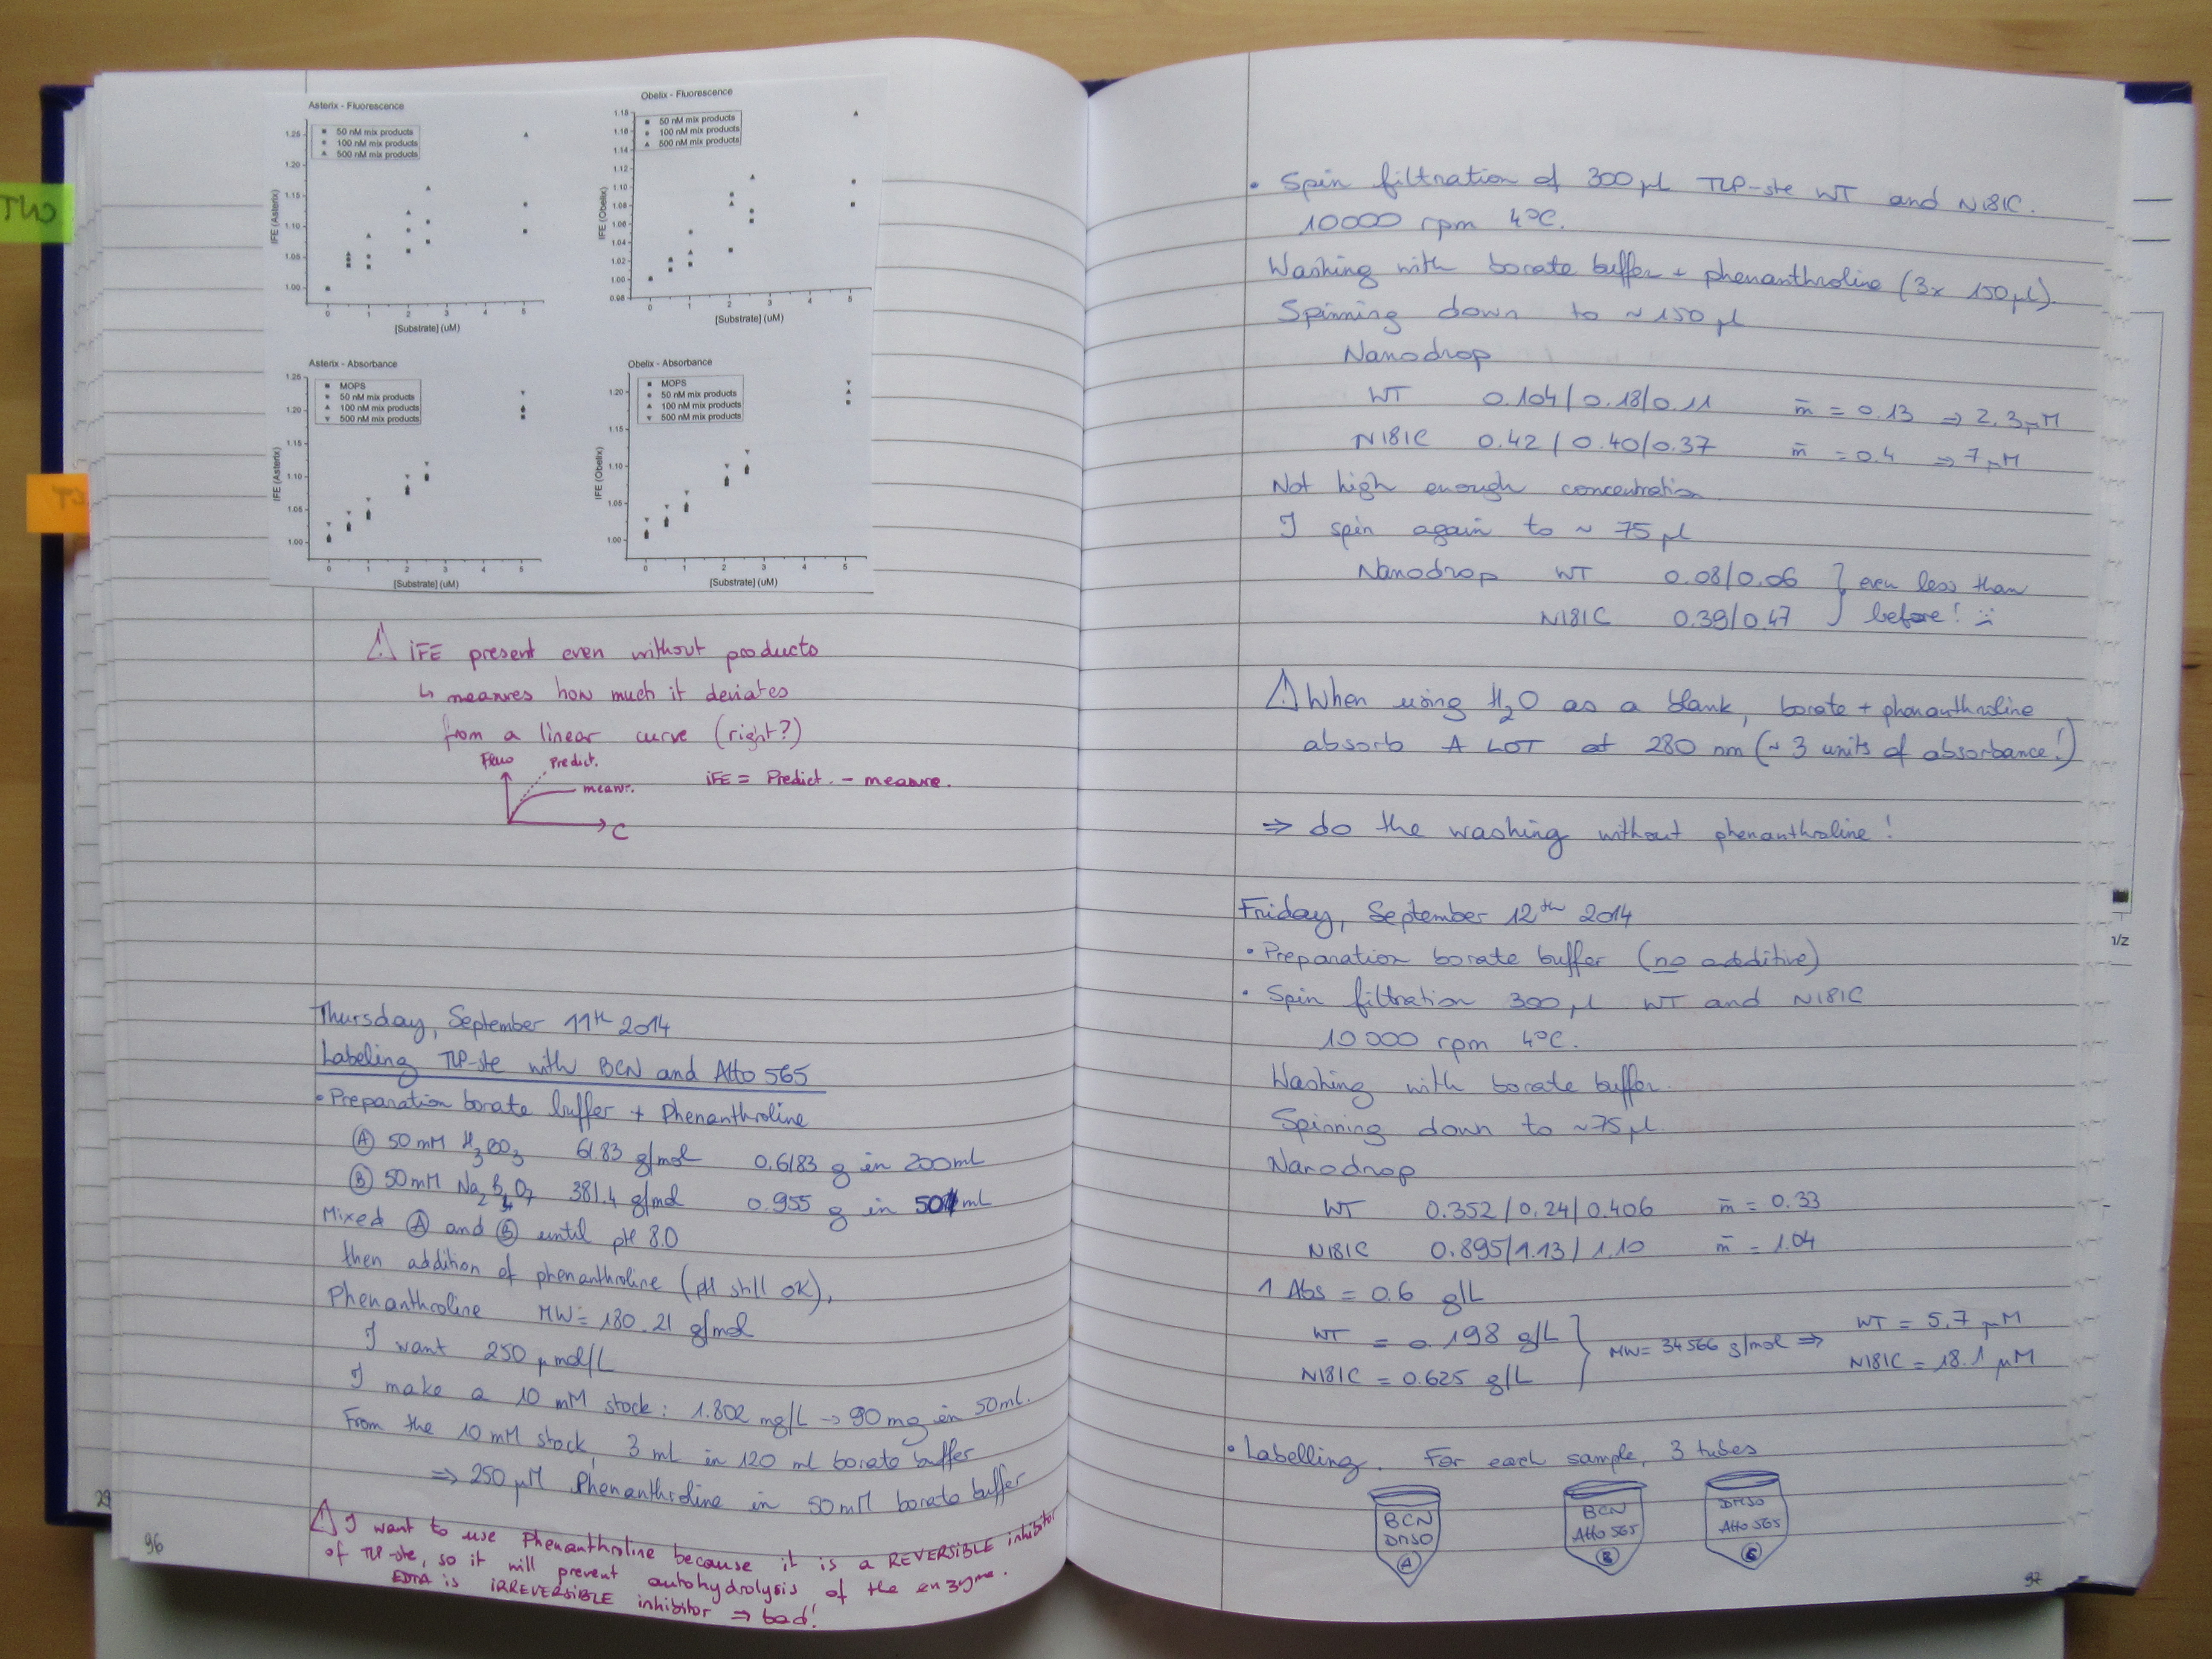 Asterix - Fluorescence
50 nM mix products
100 nM mix products
500 nM mix products
IFE (Asterix)
1.25
1.20
1.15
1.10
1.05
1.00
0 1 2 3 4 5
[Substrate] (uM)
Obelix - Fluorescence
50 nM mix products
100 nM mix products
500 nM mix products
IFE (Obelix)
1.18
1.16
1.14
1.12
1.10
1.08
1.06
1.04
1.02
1.00
0.98
0 1 2 3 4 5
[Substrate] (uM)
Asterix - Absorbance
MOPS
50 nM mix products
100 nM mix products
500 nM mix products
IFE (Asterix)
1.25
1.20
1.15
1.10
1.05
1.00
0 1 2 3 4 5
[Substrate] (uM)
Obelix - Absorbance
MOPS
50 nM mix products
100 nM mix products
500 nM mix products
IFE (Obelix)
1.20
1.15
1.10
1.05
1.00
0 1 2 3 4 5
[Substrate] (uM)
⚠ iFE present even without products
↳ measures how much it deviates
from a linear curve (right?)
Fluo Predict.
measur.
C
iFE = Predict. - measure.
Thursday, September 11th 2014
Labeling TLP-ste with BCN and Atto 565
• Preparation borate buffer + Phenanthroline
Ⓐ 50 mM H3BO3 61.83 g/mol 0.6183 g in 200 ml
Ⓑ 50 mM Na2B4O7 381.4 g/mol 0.955 g in 50 ml
Mixed Ⓐ and Ⓑ until pH 8.0
then addition of phenanthroline (pH still OK),
Phenanthroline MW = 180.21 g/mol
I want 250 µmol/L
I make a 10 mM stock: 1.802 mg/L → 90 mg in 50 ml.
From the 10 mM stock, 3 ml in 120 ml borate buffer
⇒ 250 µM Phenanthroline in 50 mM borate buffer
⚠ I want to use Phenanthroline because it is a REVERSIBLE inhibitor
of TLP-ste, so it will prevent autohydrolysis of the enzyme.
EDTA is IRREVERSIBLE inhibitor ⇒ bad!
96
• Spin filtration of 300 µl TLP-ste WT and N181C.
10000 rpm 4°C.
Washing with borate buffer + phenanthroline (3x 150 µl).
Spinning down to ~ 150 µl
Nanodrop
WT 0.104 / 0.18 / 0.11 m̄ = 0.13 ⇒ 2.3 µM
N181C 0.42 / 0.40 / 0.37 m̄ = 0.4 ⇒ 7 µM
Not high enough concentration.
I spin again to ~ 75 µl
Nanodrop WT 0.08 / 0.06 } even less than
N181C 0.39 / 0.47 before! :(
⚠ When using H2O as a blank, borate + phenanthroline
absorb A LOT at 280 nm (~ 3 units of absorbance!)
⇒ do the washing without phenanthroline!
Friday, September 12th 2014
• Preparation borate buffer (no additive)
• Spin filtration 300 µl WT and N181C
10 000 rpm 4°C.
Washing with borate buffer.
Spinning down to ~75 µl.
Nanodrop
WT 0.352 / 0.24 / 0.406 m̄ = 0.33
N181C 0.895 / 1.13 / 1.10 m̄ = 1.04
1 Abs = 0.6 g/L
WT = 0.198 g/L } MW = 34566 g/mol ⇒ WT = 5.7 µM
N181C = 0.625 g/L N181C = 18.1 µM
• Labelling. For each sample, 3 tubes
BCN DMSO Ⓐ
BCN Atto 565 Ⓑ
DMSO Atto 565 Ⓒ
97
m/z